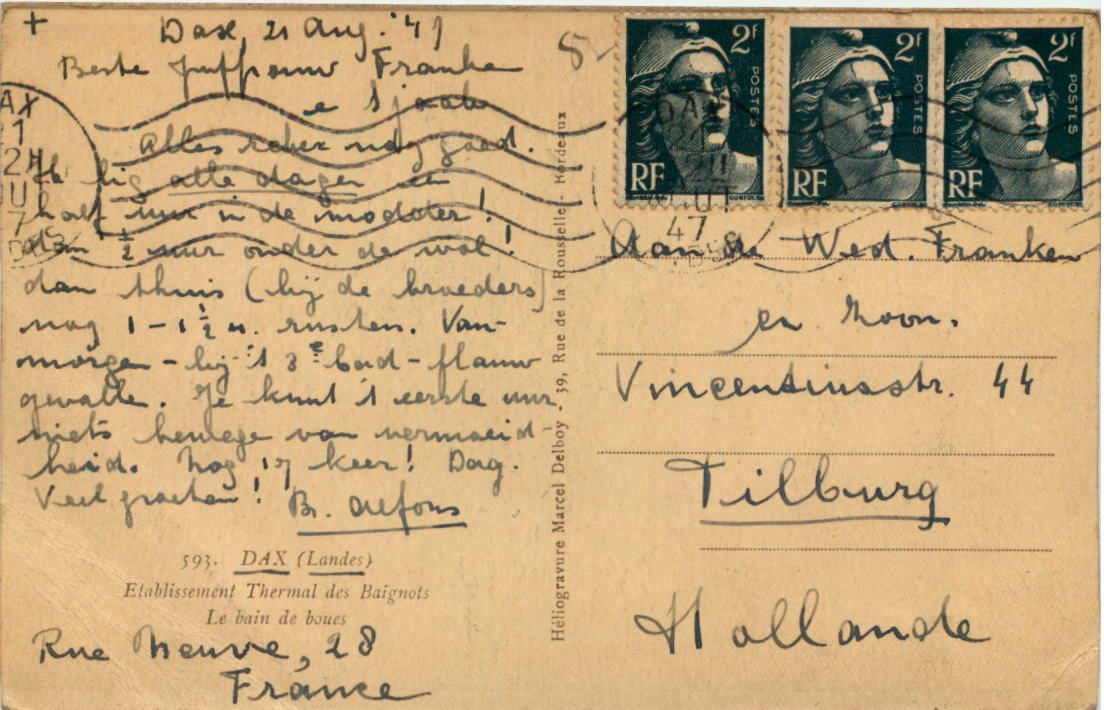 +
Dax, 21 Aug. '47
Beste Juffrouw Franke
e Sjaak
Alles zeker nog goed.
Ik lig alle dagen een
half uur in de modder!
dan ½ uur onder de wol!
dan thuis (bij de broeders)
nog 1 - 1 ½ u. rusten. Van-
morgen - bij 't 3e bad - flauw
gevalle. Je kunt 't eerste uur
niets bewege van vermoeid-
heid. Nog 17 keer! Dag.
Veel groeten! Br. Alfons
593. DAX (Landes)
Etablissement Thermal des Baignots
Le bain de boues
Rue Neuve, 28
France
Héliogravure Marcel Delboy - 39, Rue de la Rousselle - Bordeaux
2F POSTES RF
2F POSTES RF
2F POSTES RF
DAX
47
Aan de Wed. Franken
en Zoon.
Vincentiusstr. 44
Tilburg
Hollande